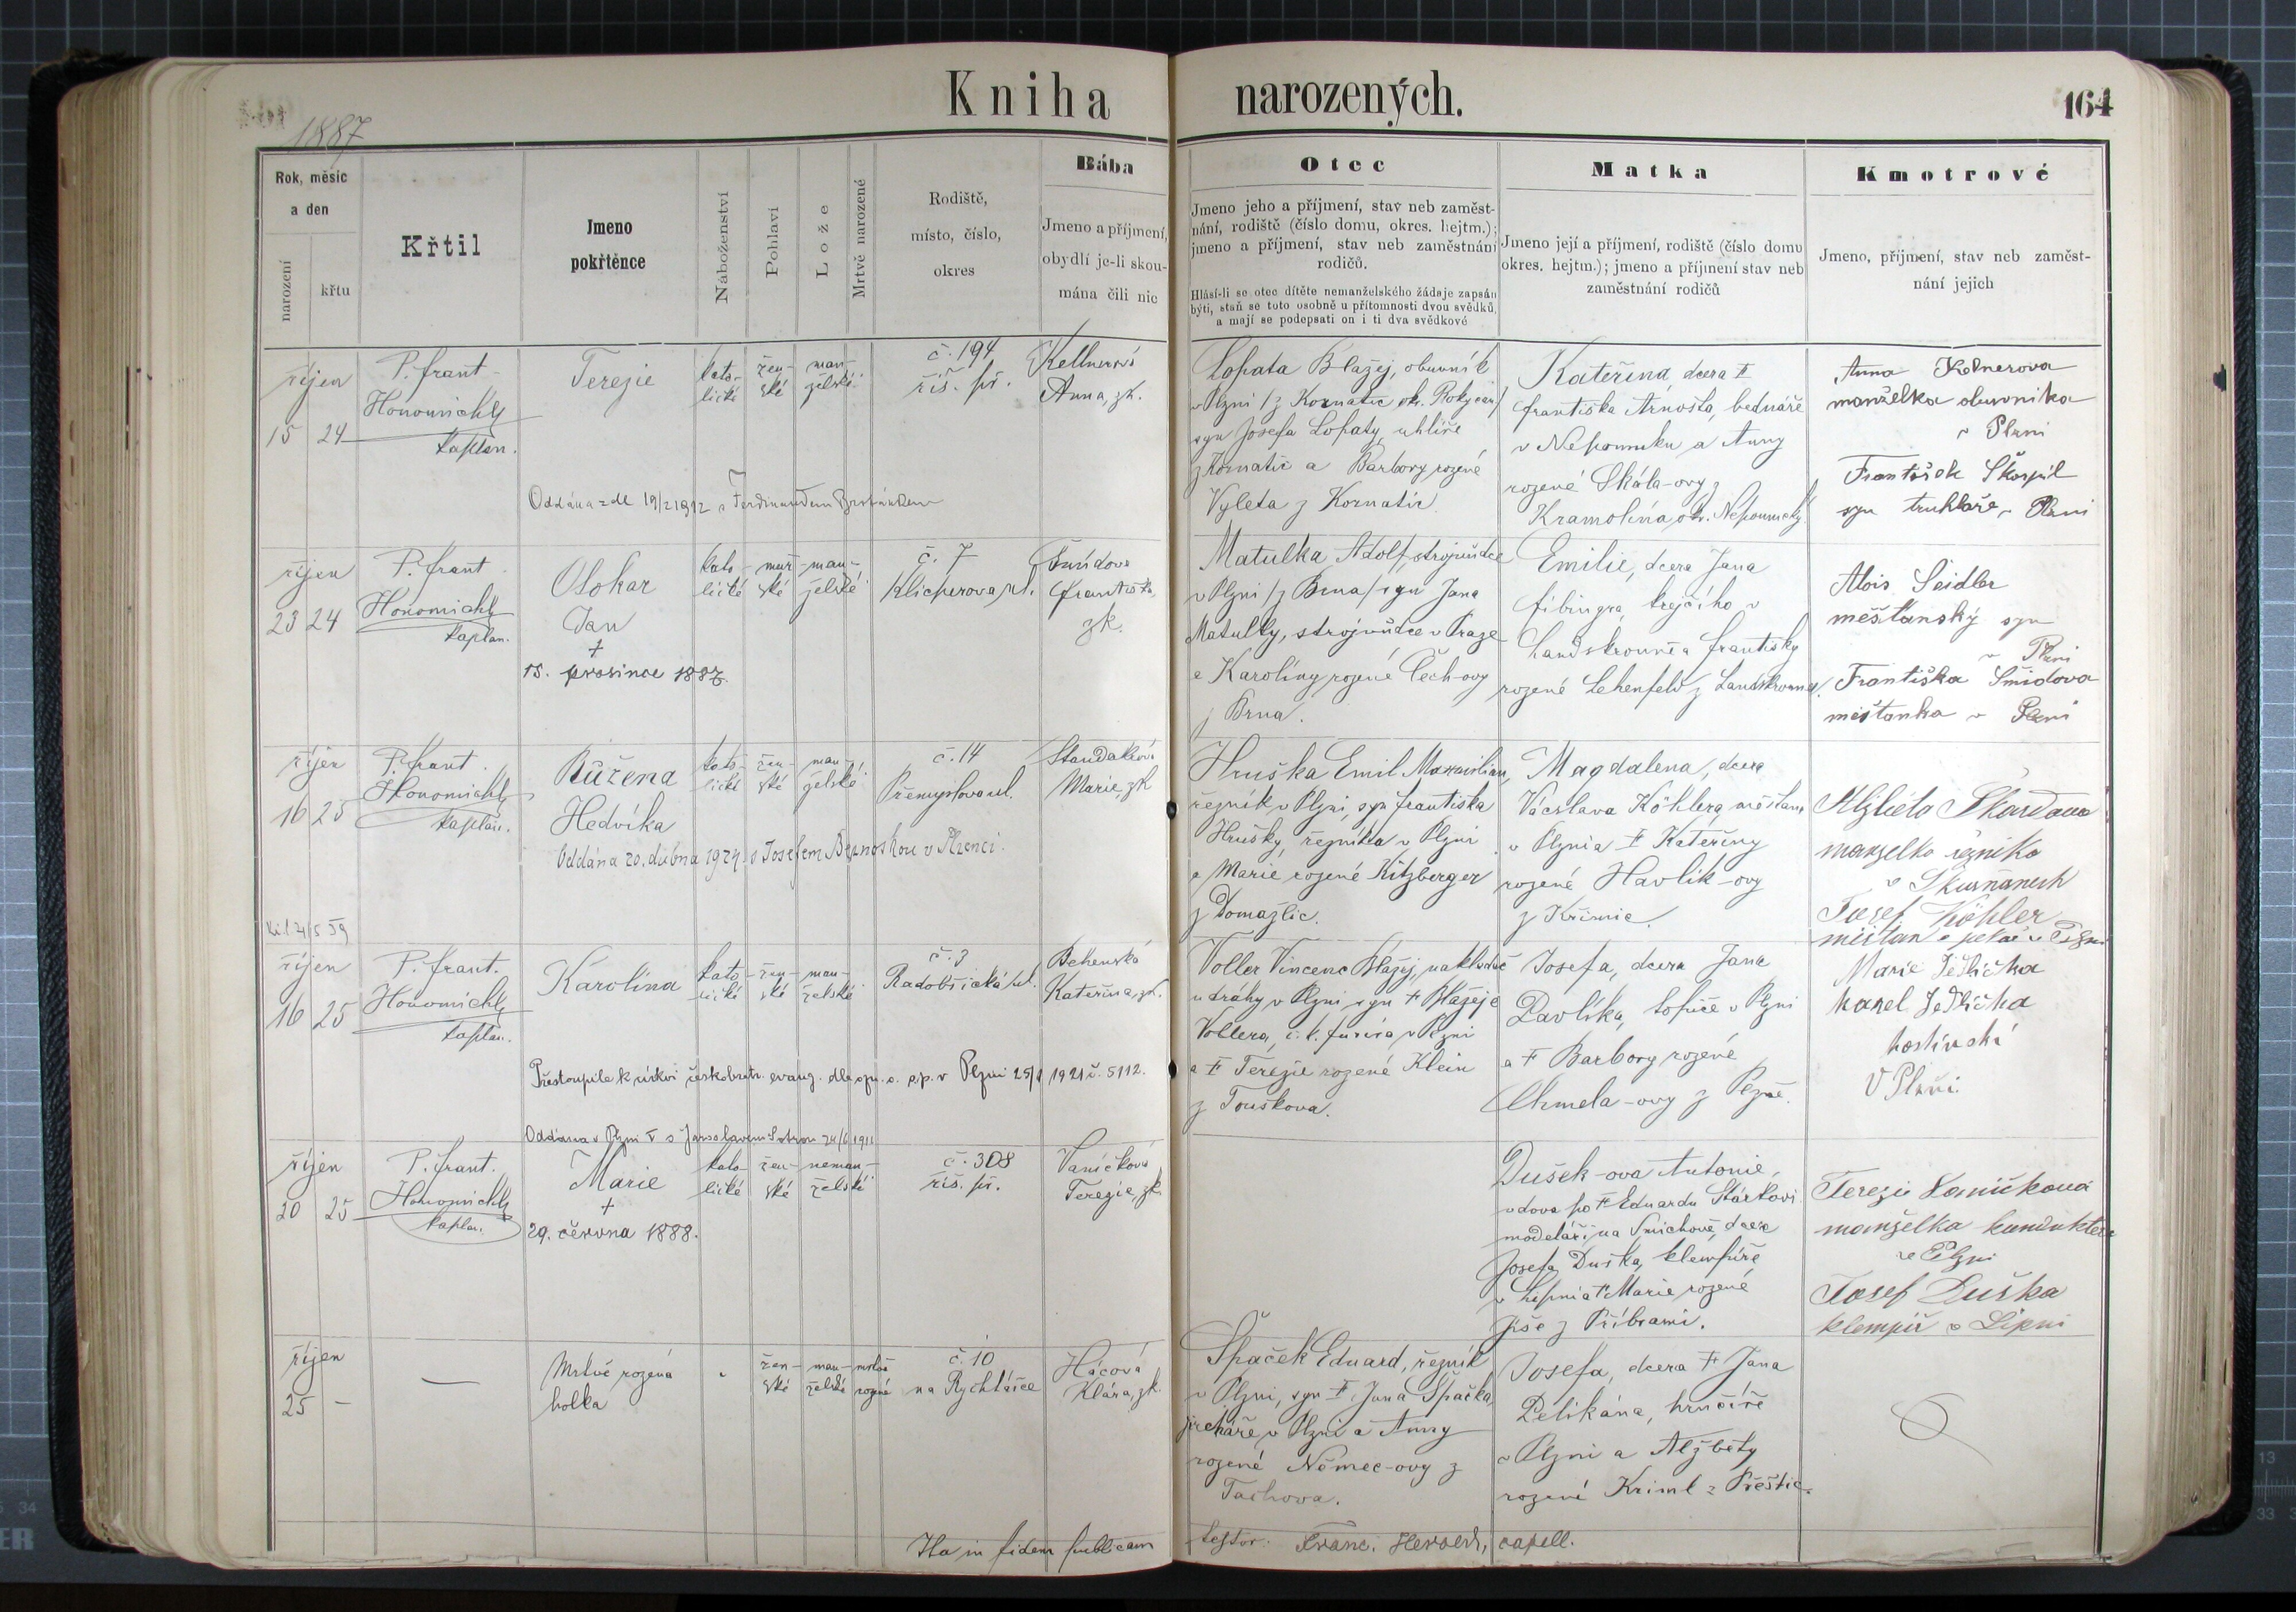 Kniha narozených.
164
1887
Rok, měsíc
a den
narození
křtu
Křtil
Jmeno
pokřtěnce
Náboženství
Pohlaví
Lože
Mrtvě narozené
Rodiště,
místo, číslo,
okres
Bába
Jmeno a příjmení,
obydlí je-li skou-
mána čili nic
Otec
Jmeno jeho a příjmení, stav neb zaměst-
nání, rodiště (číslo domu, okres. hejtm.);
jmeno a příjmení, stav neb zaměstnání
rodičů.
Hlásí-li se otec dítěte nemanželského žádaje zapsán
býti, staň se toto osobně u přítomnosti dvou svědků,
a mají se podepsati on i ti dva svědkové
Matka
Jmeno její a příjmení, rodiště (číslo domu
okres. hejtm.); jmeno a příjmení stav neb
zaměstnání rodičů
Kmotrové
Jmeno, příjmení, stav neb zaměst-
nání jejich
říjen
15 24
P. frant.
Honomichl
kaplan.
Terezie
kato-
lické
žen-
ské
man-
želské
č. 194
řiš. př.
Kellnerová
Anna, zk.
Oddána zde 19/2 1912 s Ferdinandem
Lopata Blažej, obuvník
v Plzni /z Kornatic ok. Rokycan/
syn Josefa Lopaty, uhlíře
z Kornatic a Barbory rozené
Vyleta z Kornatic.
Kateřina, dcera †
františka Arnošta, bednáře
v Nepomuku a Anny
rozené Skála-ovy z
Kramolína, okr. Nepomucký.
Anna Kelnerova
manželka obuvnika
v Plzni
František Škorpil
syn truhláře v Plzni
říjen
23 24
P. frant.
Honomichl
kaplan.
Otokar
Jan
†
15. prosince 1887.
kato-
lické
muž-
ské
man-
želské
č. 7
Klicperova ul.
Šmídova
Františka,
zk.
Matulka Adolf, strojvůdce
v Plzni /z Brna/ syn Jana
Matulky, strojvůdce v Praze
a Karolíny rozené Čech-ovy
z Brna.
Emilie, dcera Jana
fibingra, krejčího v
Landskrouně a františky
rozené Lehenfeld z Landskrouna.
Alois Seidler
měšťanský syn
v Plzni
Františka Šmidova
měšťanka v Plzni
říjen
16 25
P. frant.
Honomichl
kaplan.
Růžena
Hedvika
kato-
lické
žen-
ské
man-
želské
č. 14
Přemyslova ul.
Marie, zk
Oddána 20. dubna 1924 s Josefem
Hruška Emil Maxmilian,
řezník v Plzni, syn františka
Hrušky řezníka v Plzni
a Marie rozené Kitzberger
z Domažlic.
Magdalena, dcera
Václava Köhlera, měšťana
v Plzni a † Kateřiny
rozené Havlik-ovy
z Křimic.
Alžběta
manželka řeznika
v Skurňanech
Josef Köhler
měšťan a pekař v Plzni
říjen
16 25
P. frant.
Honomichl
kaplan.
Karolina
kato-
lické
žen-
ské
man-
želské
č. 3
Radobčická ul.
Kateřina, zk.
Přestoupila k církvi českobratr. evang. dle ozn. o. s. p. v Plzni 25/1 1921 č. 5112.
Voller Vincenc Blažej, nakladač
u dráhy v Plzni, syn † Blažeje
Vollera, c. k. furira v Plzni
a † Terezie rozené Klein
z Touškova.
Josefa, dcera Jana
Pavlíka, topiče v Plzni
a † Barbory rozené
Chmela-ovy z Plzně.
Marie Jedlička
Karel Jedlička
hostinský
V Plzni.
Oddána v Plzni s Jaroslavem
říjen
20 25
P. frant.
Honomichl
kaplan.
Marie
†
29. června 1888.
kato-
lické
žen-
ské
neman-
želské
č. 308
řiš. př.
Vaníčková
Terezie, zk.
Dušek-ova Antonie,
vdova po † Eduardu Stárkovi
modeláři na Smichově, dcera
Josefa Duška, klempíře
v Lipni a † Marie rozené
Jíše z Příbrami.
Terezie Vaničková
manželka kunduktera
v Plzni
Josef Duška
klempíř v Lipni
říjen
25 -
Mrtvě rozená
holka
žen-
ské
man-
želské
mrtvě
rozené
č. 10
na Rychtářce
Hácová
Klára, zk.
Špaček Eduard, řezník
v Plzni, syn † Jana Špačka,
jircháře v Plzni a Anny
rozené Němec-ovy z
Tachova.
Josefa, dcera † Jana
Pelikána, hrnčíře
v Plzni a Alžběty
rozené Kriml z Přeštic.
Ita in fidem publicam
testor. Franc. capell.